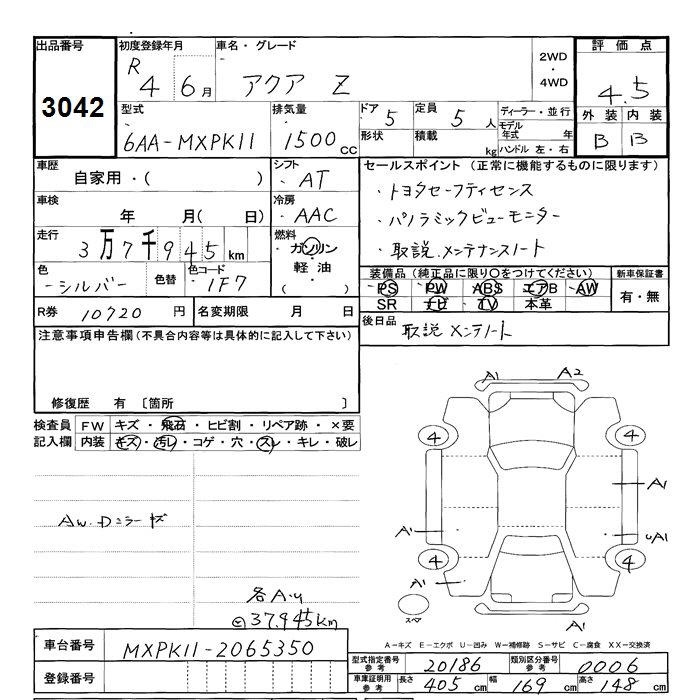 出品番号 初度登録年月 車名・グレード 2WD・4WD 評価点
3042 R 4 6月 アクア Z 4.5
型式 排気量 ドア 5 定員 5人 ディーラー・並行 外装 内装
6AA-MXPK11 1500cc 形状 積載 kg モデル年式 年 B B
ハンドル 左・右
車歴 シフト セールスポイント (正常に機能するものに限ります)
自家用・( ) ・AT ・トヨタセーフティセンス
車検 冷房 ・パノラミックビューモニター
年 月(日) ・AAC
走行 燃料 ・取説.メンテナンスノート
3万7千945km ガソリン・軽油・
色 色替 色コード 装備品 (純正品に限り○をつけてください) 新車保証書
-シルバー 1F7 PS PW ABS エアB AW 有・無
SR ナビ TV 本革
R券 10720円 名変期限 月 日 後日品 取説 メンテノート
注意事項申告欄(不具合内容等は具体的に記入して下さい)
修復歴 有〔箇所 〕
検査員 FW キズ・飛石・ヒビ割・リペア跡・×要
記入欄 内装 キズ・汚レ・コゲ・穴・スレ・キレ・破レ
A1 A2
4 4
AW.Dミラーキズ
A1
A1 UA1
4 4
A1
各A.U
37.945km
スペア
A1
車台番号 MXPK11-2065350
登録番号
A-キズ E-エクボ U-凹み W-補修跡 S-サビ C-腐食 XX-交換済
型式指定番号 参考 20186 類別区分番号 参考 0006
車庫証明用 参考 長さ 405cm 幅 169cm 高さ 148cm